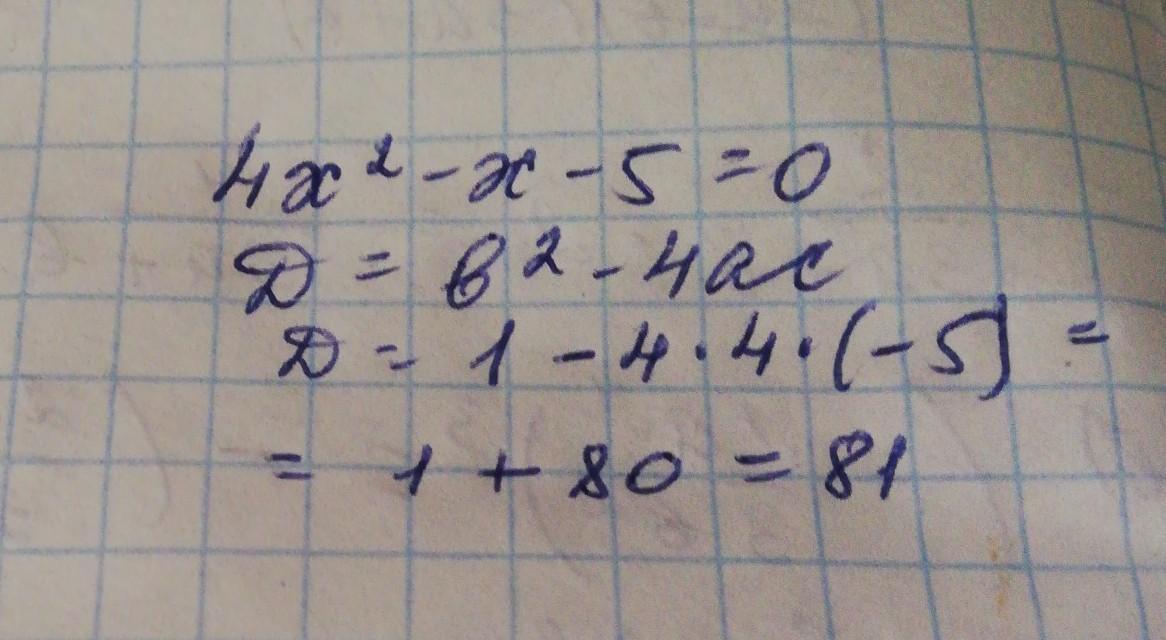 4x² - x - 5 = 0
D = b² - 4ac
D = 1 - 4 · 4 · (-5) =
= 1 + 80 = 81